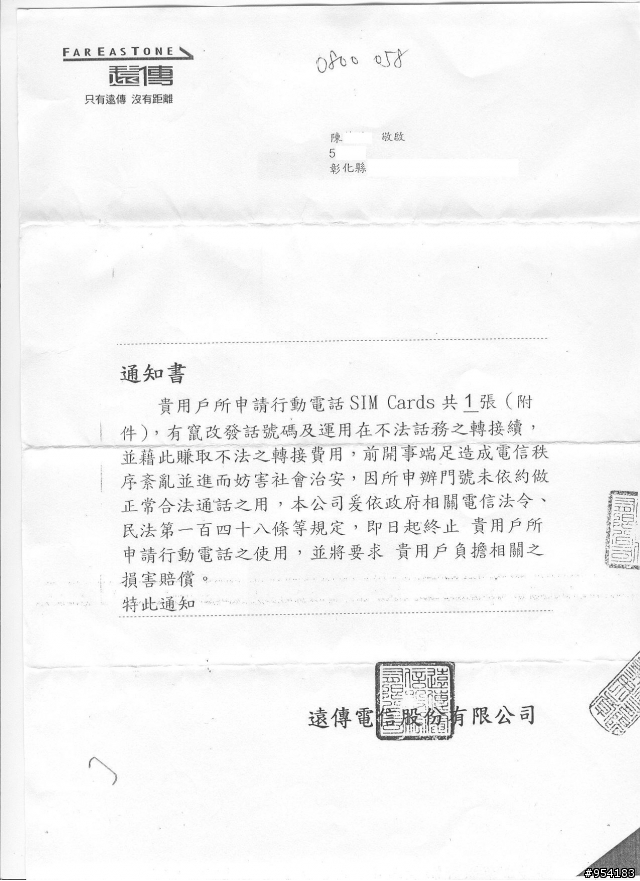 FAREASTONE
遠傳
只有遠傳 沒有距離
0800 058
陳 敬啟
5
彰化縣
通知書
貴用戶所申請行動電話 SIM Cards 共 1 張（附
件），有竄改發話號碼及運用在不法話務之轉接續，
並藉此賺取不法之轉接費用，前開事端足造成電信秩
序紊亂並進而妨害社會治安，因所申辦門號未依約做
正常合法通話之用，本公司爰依政府相關電信法令、
民法第一百四十八條等規定，即日起終止 貴用戶所
申請行動電話之使用，並將要求 貴用戶負擔相關之
損害賠償。
特此通知
遠傳電信股份有限公司
#954183